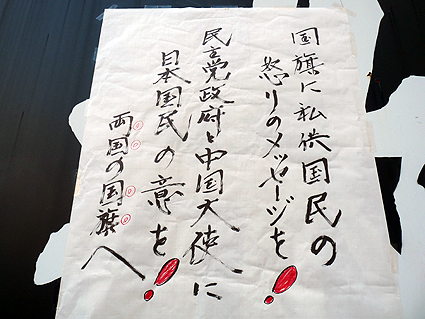 国旗に私供国民の
怒りのメッセージを!
民主党政府と中国大使に
日本国民の意を!
両国の国旗へ